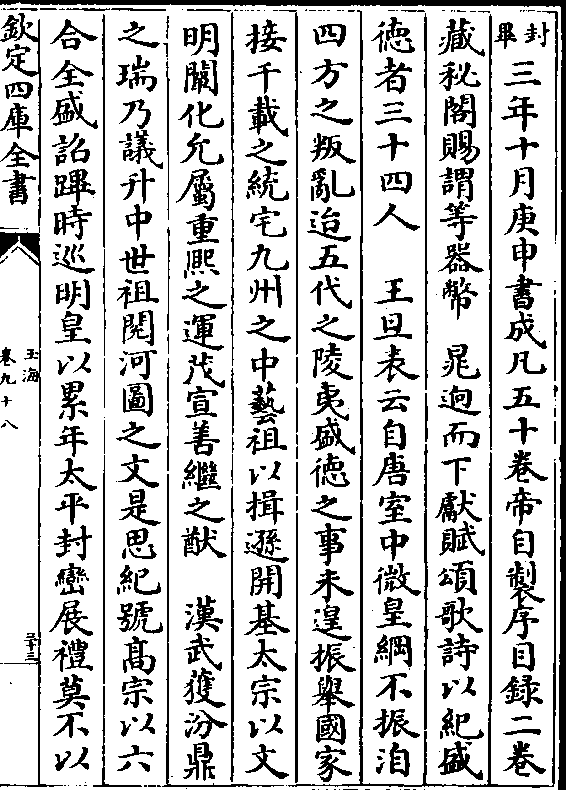 封畢三年十月庚申書成凡五十卷帝自製序目録二卷
藏秘閣賜謂等器幣　晁迥而下獻賦頌歌詩以紀盛
徳者三十四人　王旦表云自唐室中微皇綱不振洎
四方之叛亂迨五代之陵夷盛徳之事未遑振舉國家
接千載之統宅九州之中藝祖以揖遜開基太宗以文
明闡化允屬重熈之運茂宣善繼之猷　漢武獲汾鼎
之瑞乃議升中世祖閱河圖之文是思紀號髙宗以六
合全盛詔蹕時巡明皇以累年太平封巒展禮莫不以
欽定四庫全書
玉海
卷九十八
三十三